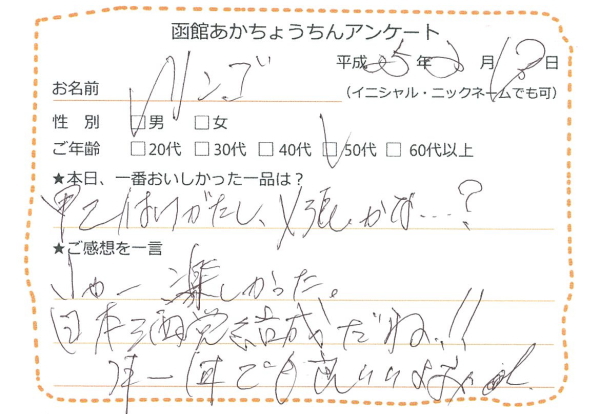 函館あかちょうちんアンケート
平成25年2月18日
お名前 リンゴ
(イニシャル・ニックネームでも可)
性 別 □男 □女
ご年齢 □20代 □30代 □40代 □50代 □60代以上
★本日、一番おいしかった一品は？
甲乙はつけがたし、〆張かな…?
★ご感想を一言
いやー 楽しかった。
日本酒党結成だね!!
年一回でも良いいよね